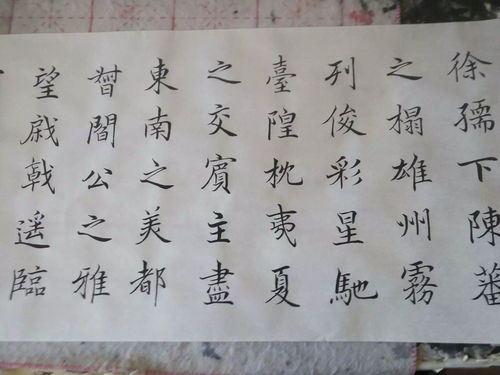 徐孺下陳蕃
之榻雄州霧
列俊彩星馳
臺隍枕夷夏
之交賓主盡
東南之美都
督閻公之雅
望戟遥臨